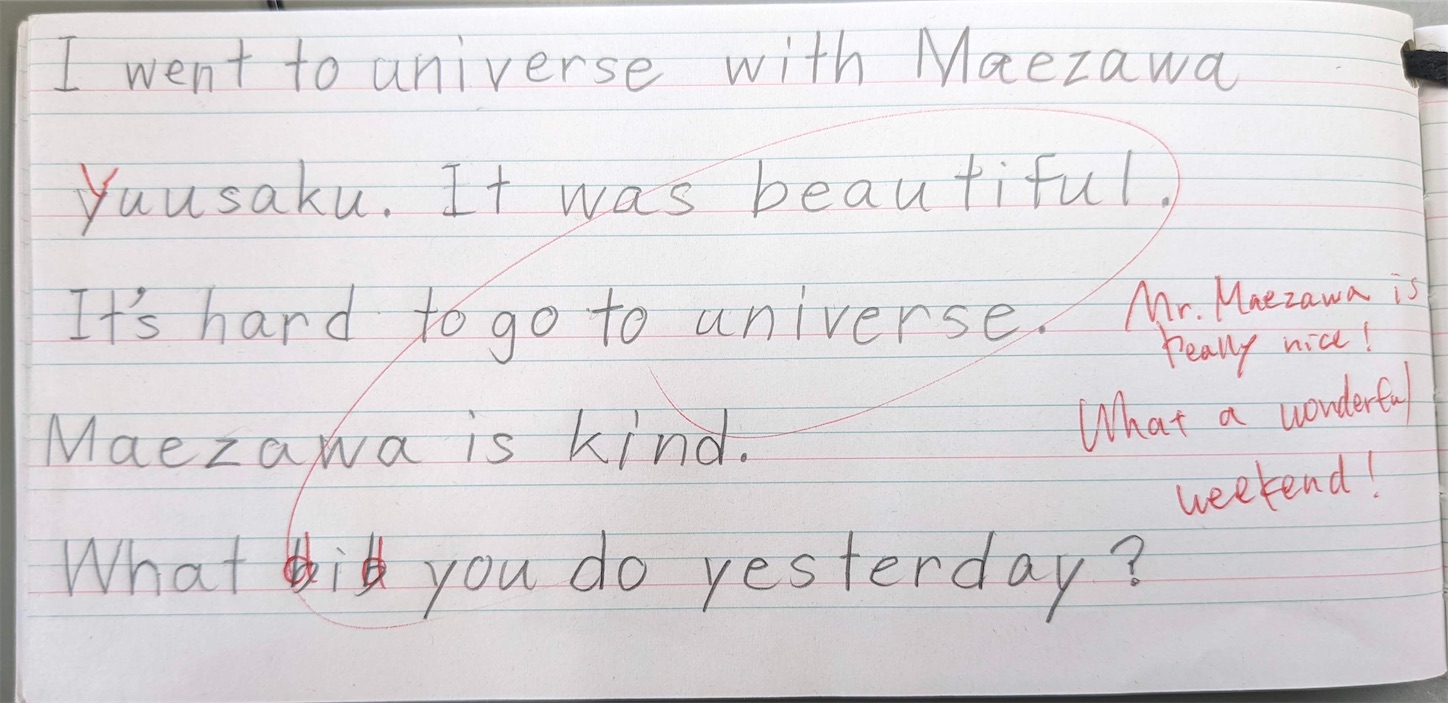 I went to universe with Maezawa
Yuusaku. It was beautiful.
It's hard to go to universe.
Mr. Maezawa is
really nice!
Maezawa is kind.
What a wonderful
weekend!
What did you do yesterday?